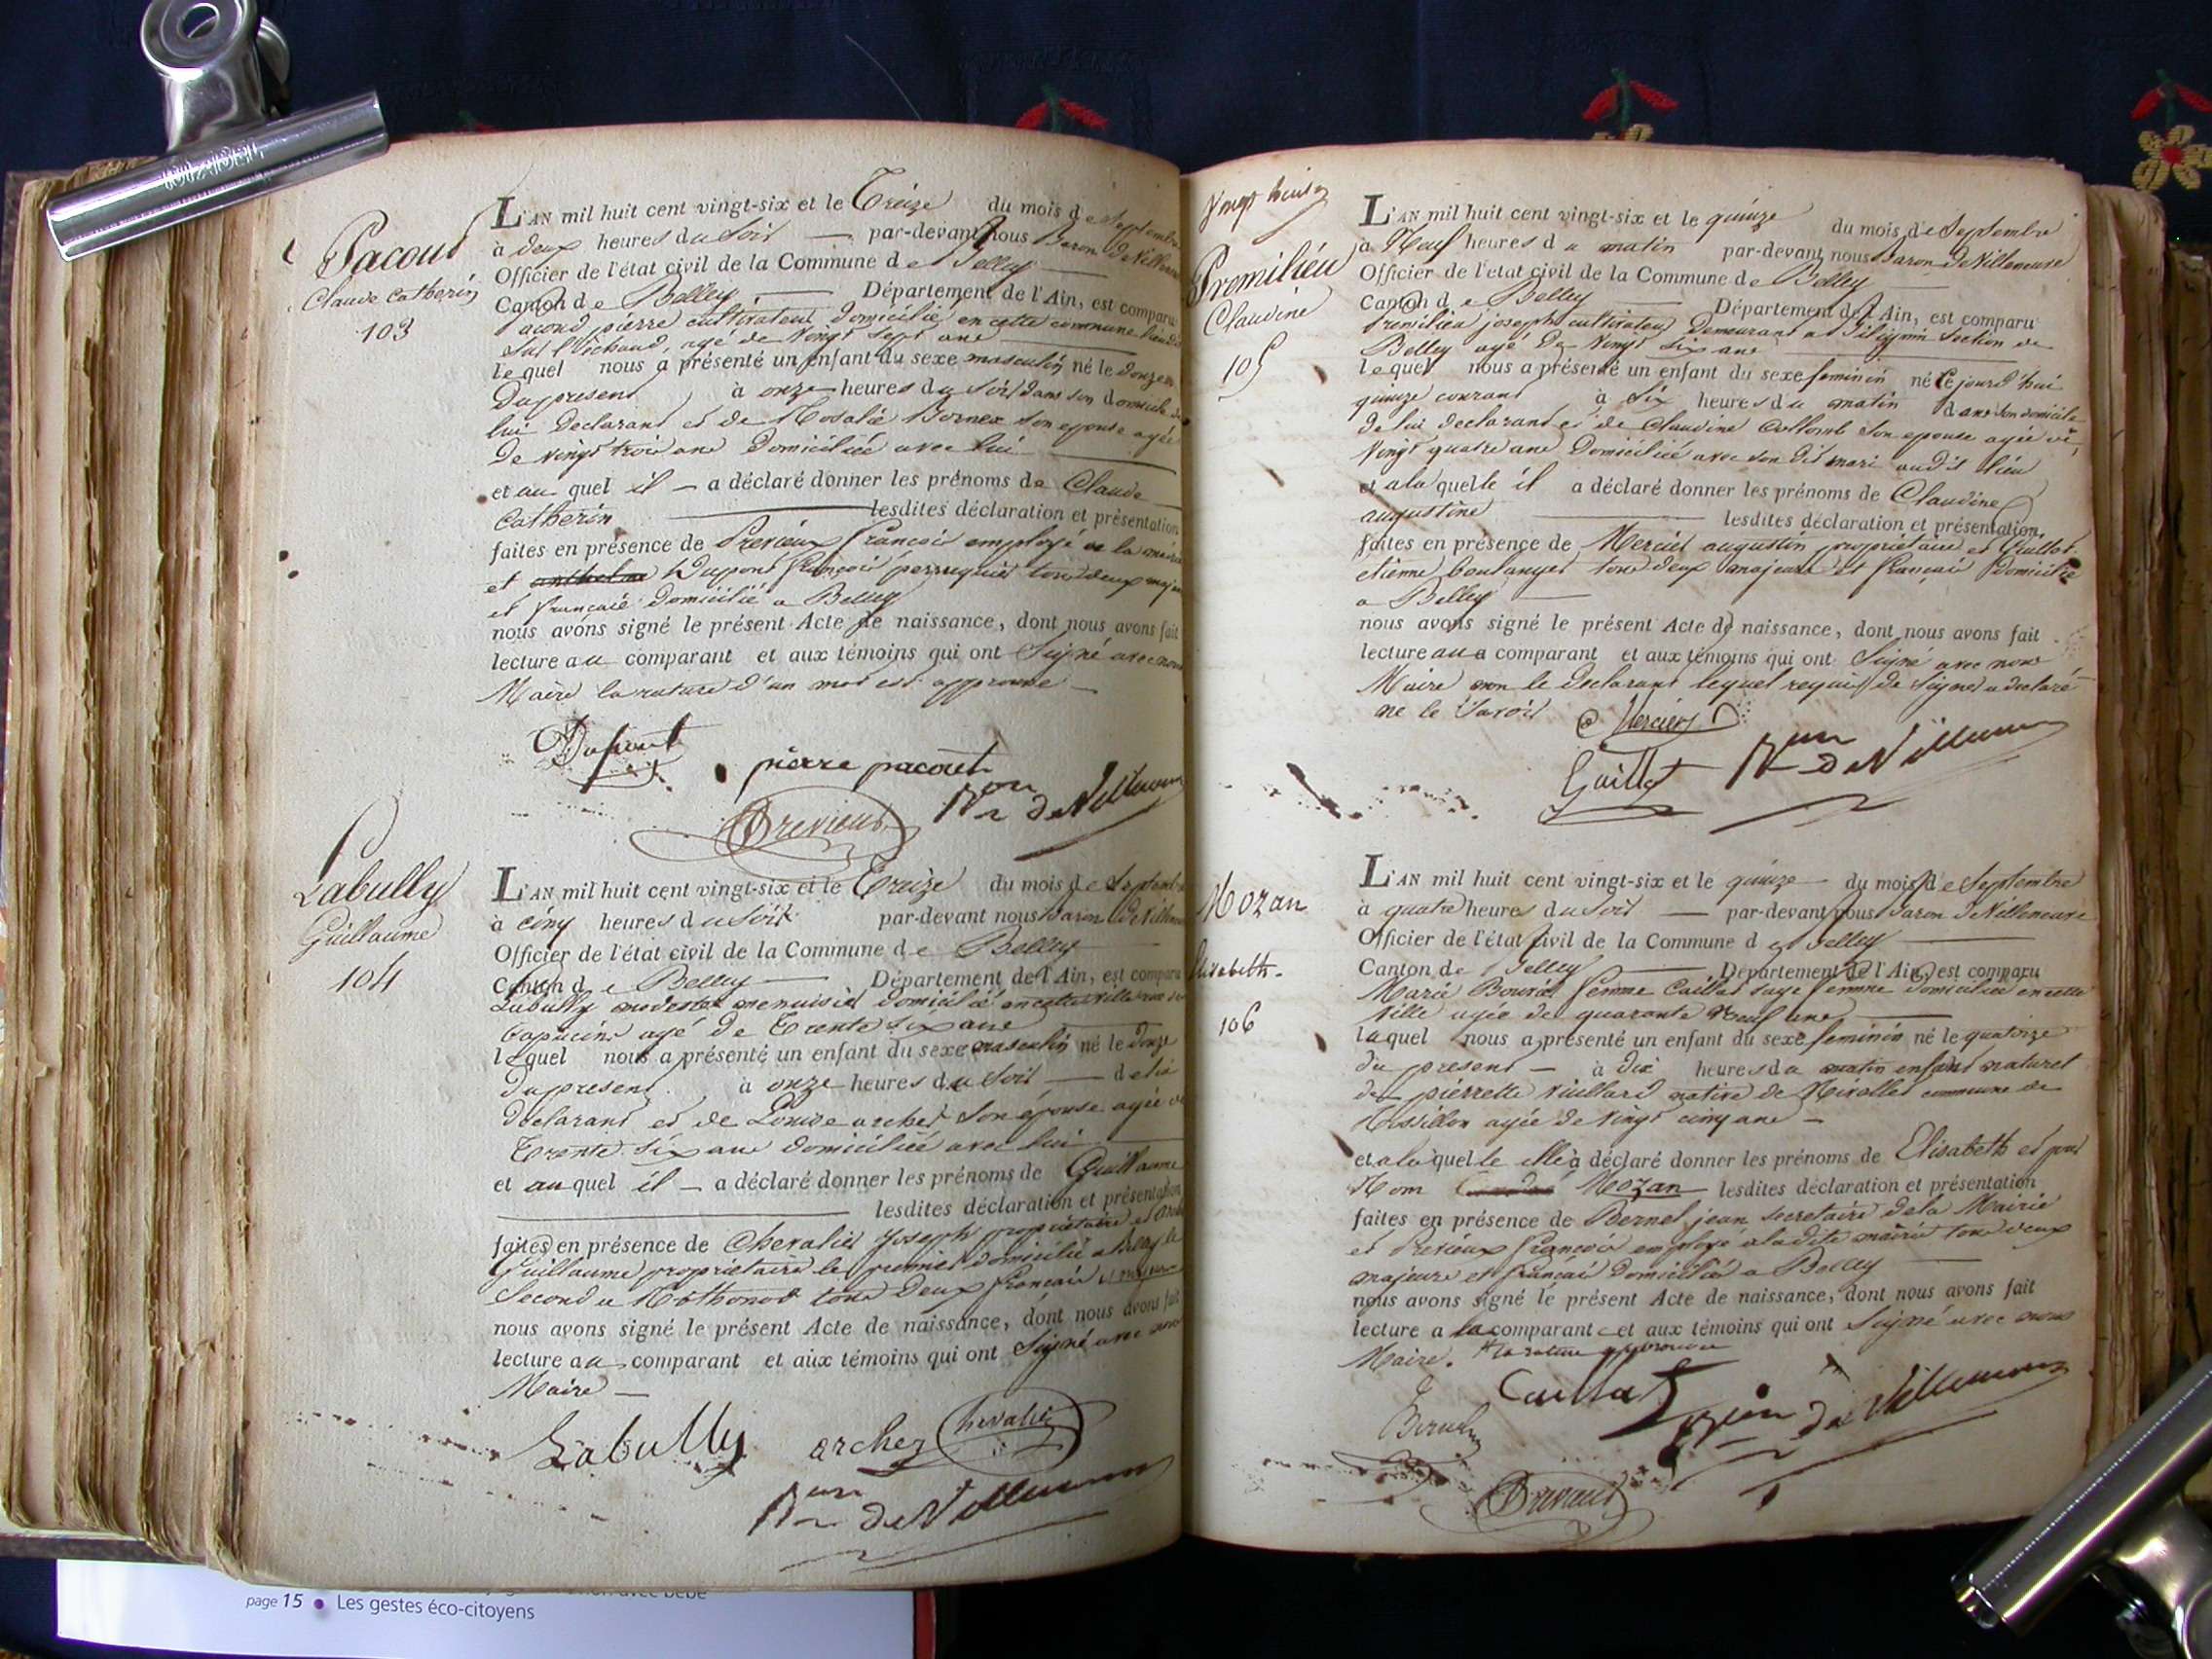 Pacoud
Claude Catherin
103
L'AN mil huit cent vingt-six et le Treize du mois de Septembre
à deux heures du Soir par-devant nous Baron de Villeneuve
Officier de l'état civil de la Commune de Belley
Canton de Belley Département de l'Ain, est comparu
pacoud pierre cultivateur domicilié en cette commune
agé de Vingt Sept ans
lequel nous a présenté un enfant du sexe masculin né le douze
du present à onze heures du Soir dans son domicile de
lui Declarant et de Rosalie Bornex son epouse agée
De vingt trois ans Domiciliée avec lui
et au quel il a déclaré donner les prénoms de Claude
Catherin lesdites déclaration et présentation
faites en présence de Previeux françois employé a la mairie
et Dupont françois perruquier tous deux majeurs
et français domicilié a Belley
nous avons signé le présent Acte de naissance, dont nous avons fait
lecture au comparant et aux témoins qui ont Signé avec nous
Maire la rature d'un mot est approuvée
Dupont
pierre pacout
Previeux
Bon de Villeneuve
Labully
Guillaume
104
L'AN mil huit cent vingt-six et le Treize du mois de Septembre
à cinq heures du Soir par-devant nous Baron de Villeneuve
Officier de l'état civil de la Commune de Belley
Canton de Belley Département de l'Ain, est comparu
Labully modeste menuisier domicilié en cette ville rue des
Capucins agé de Trente Six ans
lequel nous a présenté un enfant du sexe masculin né le douze
du present à onze heures du Soir de lui
declarant et de Louise archer Son épouse agée de
Trente Six ans domiciliée avec lui
et au quel il a déclaré donner les prénoms de Guillaume
lesdites déclaration et présentation
faites en présence de Chevalier Joseph propriétaire et
Guillaume propriétaire le premier domicilié a Belley le
Second a Rothonod tous Deux français et majeurs
nous avons signé le présent Acte de naissance, dont nous avons fait
lecture au comparant et aux témoins qui ont Signé avec nous
Maire
Labully
archer
Chevalier
Bon de Villeneuve
Vingt huit
Premilieu
Claudine
105
L'AN mil huit cent vingt-six et le quinze du mois de Septembre
à Neuf heures du matin par-devant nous Baron de Villeneuve
Officier de l'état civil de la Commune de Belley
Canton de Belley Département de l'Ain, est comparu
Premilieu joseph cultivateur Demeurant a Section de
Belley agé De Vingt Six ans
lequel nous a présenté un enfant du sexe feminin né Cejourd'hui
quinze courant à Six heures du matin dans son domicile
de lui declarant et de Claudine Collomb Son epouse agée de
Vingt quatre ans Domiciliée avec son dit mari audit lieu
et a la quelle il a déclaré donner les prénoms de Claudine
augustine lesdites déclaration et présentation
faites en présence de Mercier augustin propriétaire et Guillot
etienne boulanger tous deux majeurs et français Domicilié
a Belley
nous avons signé le présent Acte de naissance, dont nous avons fait
lecture au comparant et aux témoins qui ont Signé avec nous
Maire non le declarant lequel requis de Signer a déclaré
ne le Savoir
Mercier
Guillot
Bon de Villeneuve
Mozan
Elisabeth
106
L'AN mil huit cent vingt-six et le quinze du mois de Septembre
à quatre heures du Soir par-devant nous Baron de Villeneuve
Officier de l'état civil de la Commune de Belley
Canton de Belley Département de l'Ain, est comparu
Marie femme Caillat sage femme domiciliée en cette
Ville agée de quarante Neuf ans
laquel nous a présenté un enfant du sexe feminin né le quatorze
du present à dix heures du matin enfant naturel
de pierrette Vuillard native de commune de
Rossillon agée de Vingt cinq ans
et a la quelle elle a déclaré donner les prénoms de Elisabeth et pour
Nom Mozan lesdites déclaration et présentation
faites en présence de Bernel jean secretaire de la Mairie
et Previeux françois employé a ladite mairie tous deux
majeurs et français Domicilié a Belley
nous avons signé le présent Acte de naissance, dont nous avons fait
lecture a la comparant et aux témoins qui ont Signé avec nous
Maire. la rature approuvée
Caillat
Bernel
Bon de Villeneuve
Previeux
page 15 • Les gestes éco-citoyens